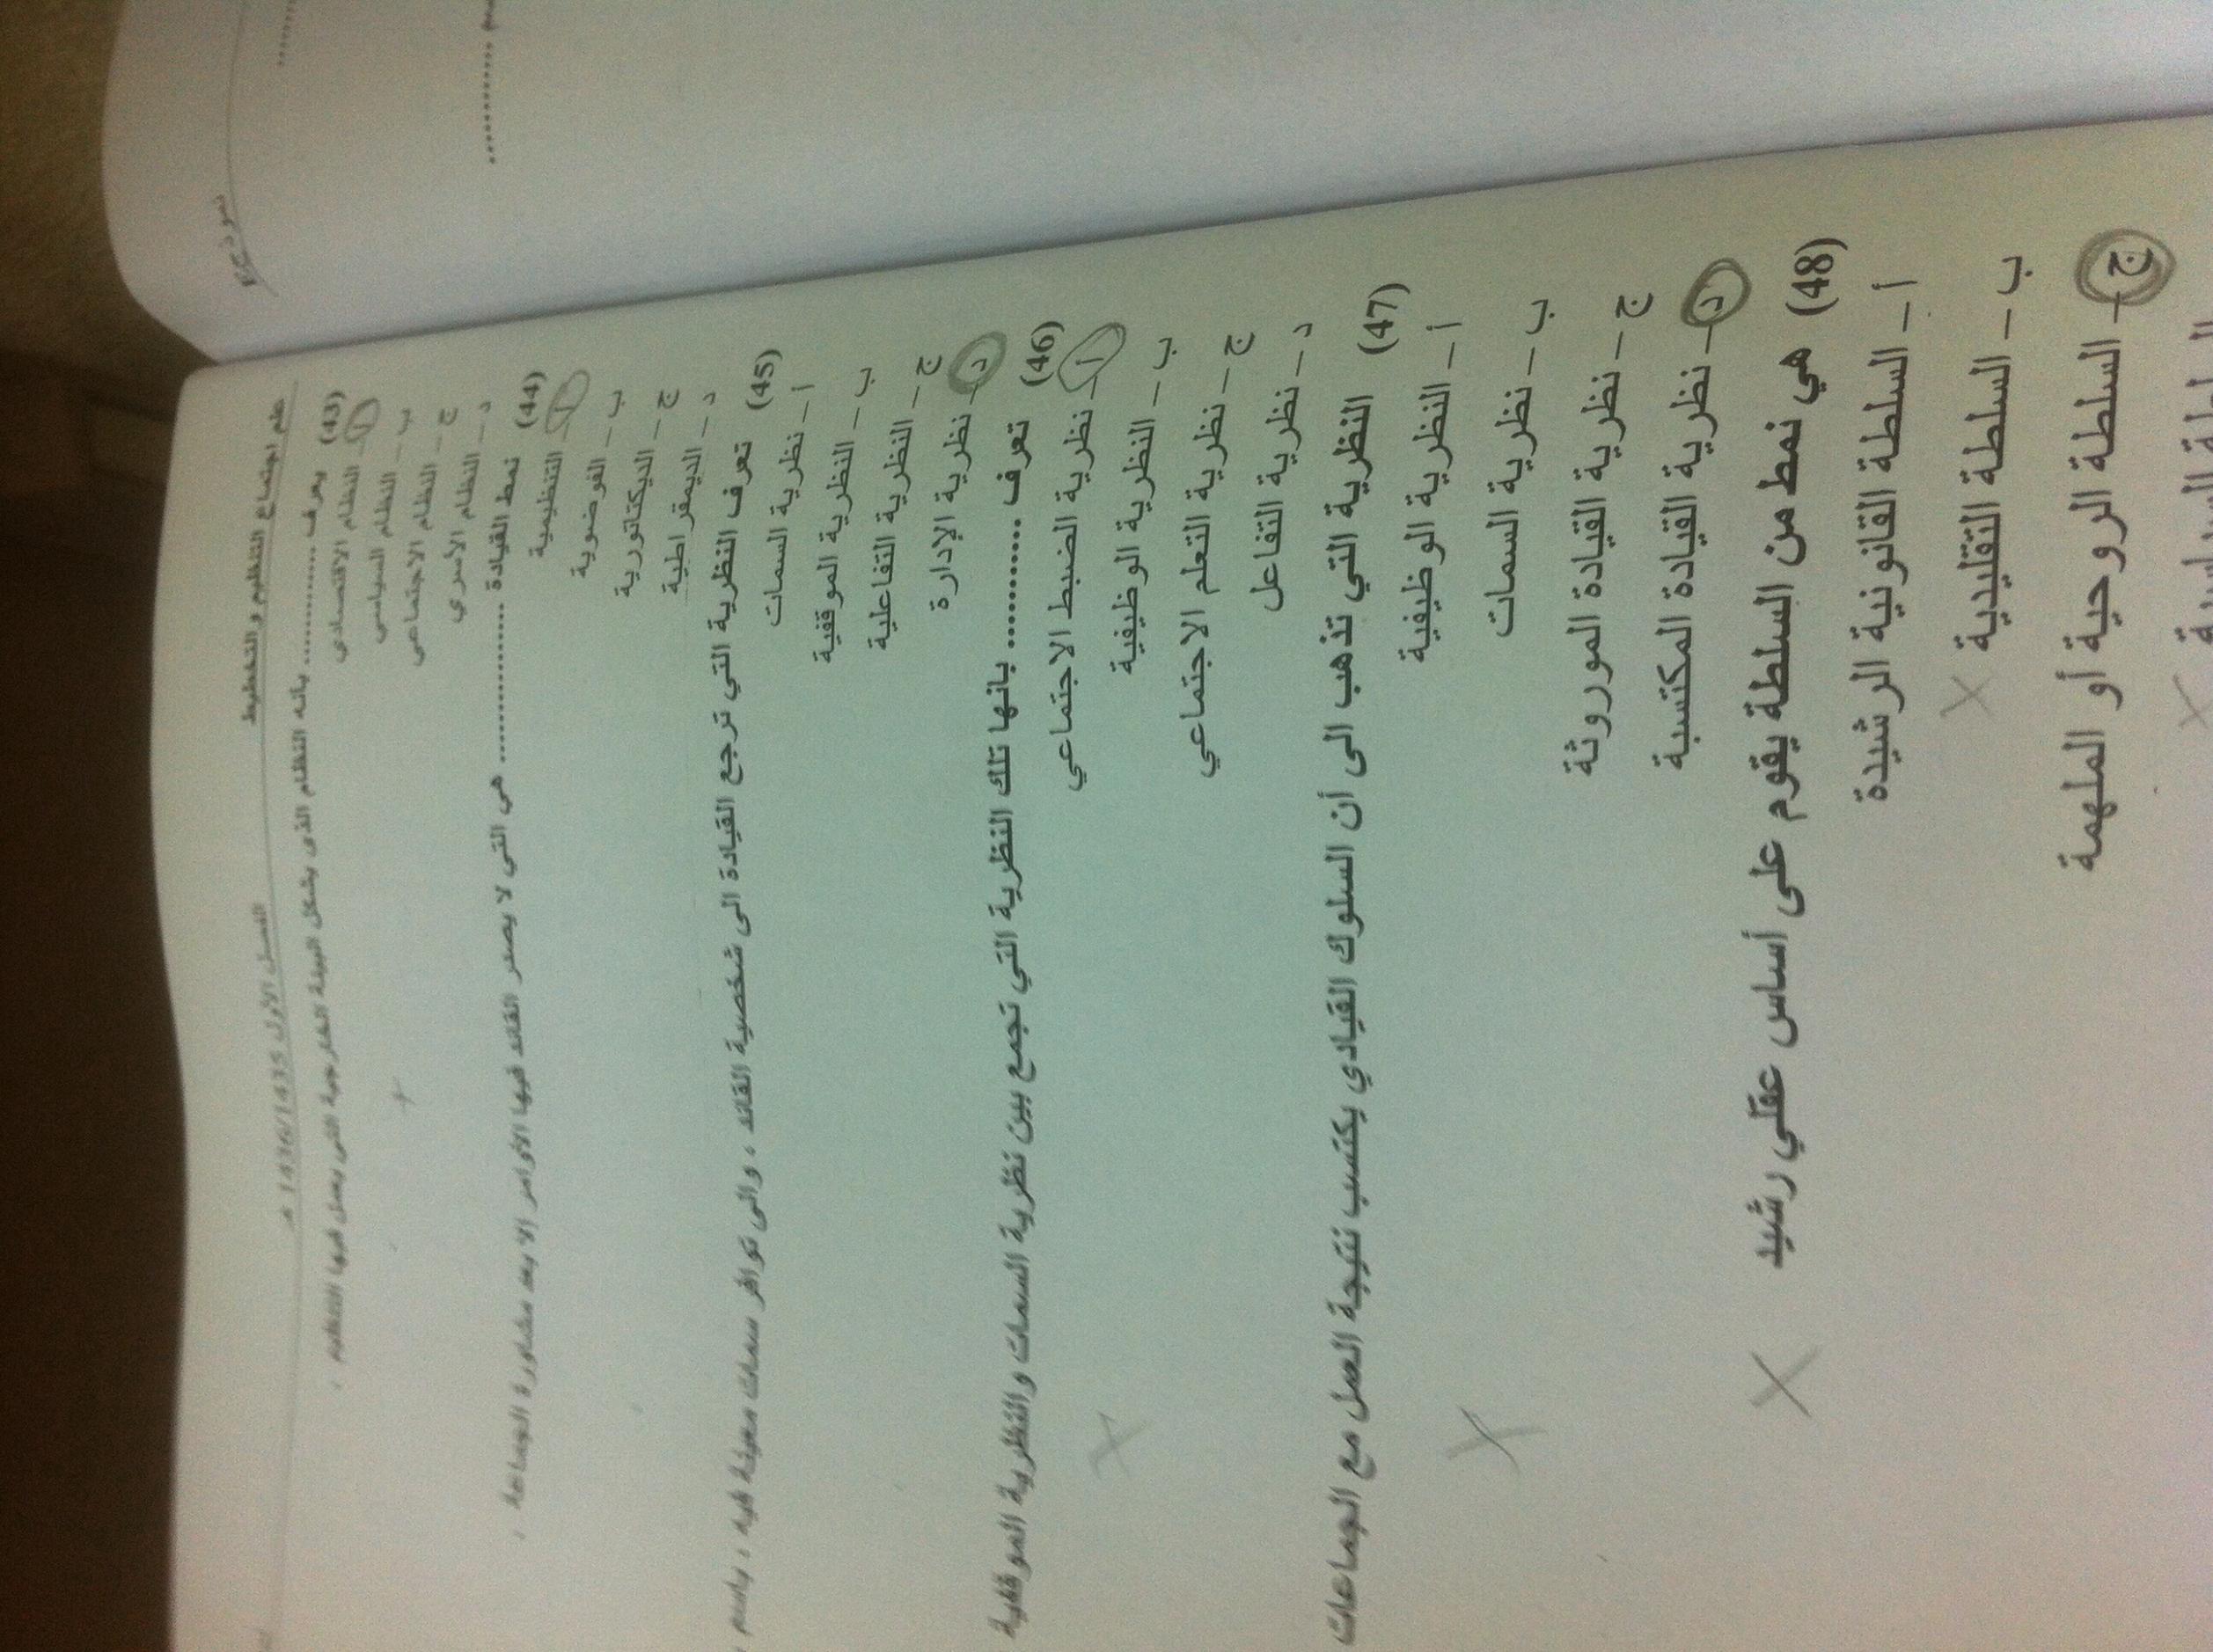 علم اجتماع التنظيم والتخطيط
الفصل الأول 1436/1435 هـ
نموذج
(43) يعرف ............ بأنه النظام الذي يشكل البيئة الخارجية التي يعمل فيها التنظيم .
أ – النظام الاقتصادي
ب – النظام السياسي
ج – النظام الاجتماعي
د – النظام الأسري
(44) نمط القيادة .............. هي التي لا يصدر القائد فيها الأوامر إلا بعد مشاورة الجماعة .
أ – التنظيمية
ب – الفوضوية
ج – الديكتاتورية
د – الديمقراطية
(45) تعرف النظرية التي ترجع القيادة الى شخصية القائد ، والى توافر سمات معينة فيه ، باسم
أ – نظرية السمات
ب – النظرية الموقفية
ج – النظرية التفاعلية
د – نظرية الإدارة
(46) تعرف ............ بانها تلك النظرية التي تجمع بين نظرية السمات والنظرية الموقفية
أ – نظرية الضبط الاجتماعي
ب – النظرية الوظيفية
ج – نظرية التعلم الاجتماعي
د – نظرية التفاعل
(47) النظرية التي تذهب الى أن السلوك القيادي يكتسب نتيجة العمل مع الجماعات
أ – النظرية الوظيفية
ب – نظرية السمات
ج – نظرية القيادة الموروثة
د – نظرية القيادة المكتسبة
(48) هي نمط من السلطة يقوم على أساس عقلي رشيد
أ – السلطة القانونية الرشيدة
ب – السلطة التقليدية
ج – السلطة الروحية أو الملهمة
السلطة السياسية